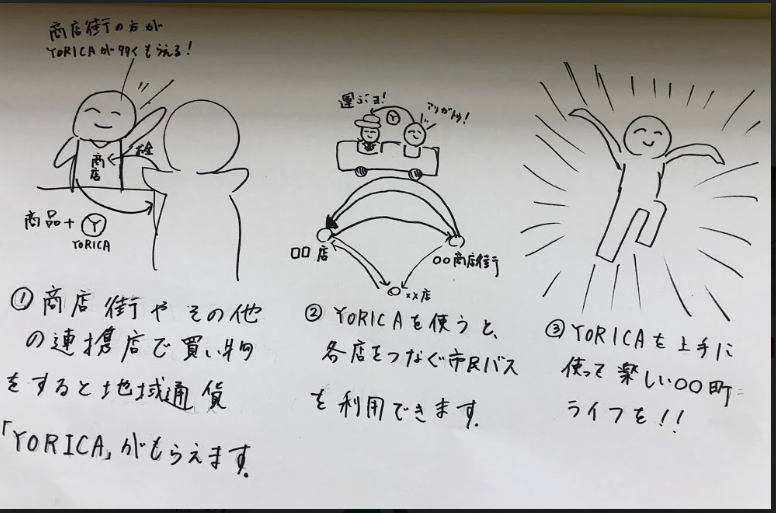 商店街の方が
YORICAが多くもらえる!
商店
お金
商品+Ⓨ
YORICA
①商店街やその他
の連携店で買い物
をすると地域通貨
「YORICA」がもらえます。
運ぶヨ!
Ⓨ
アリガトウ!
〇〇店
〇〇商店街
××店
②YORICAを使うと、
各店をつなぐ市民バス
を利用できます。
③YORICAを上手に
使って楽しい〇〇町
ライフを!!